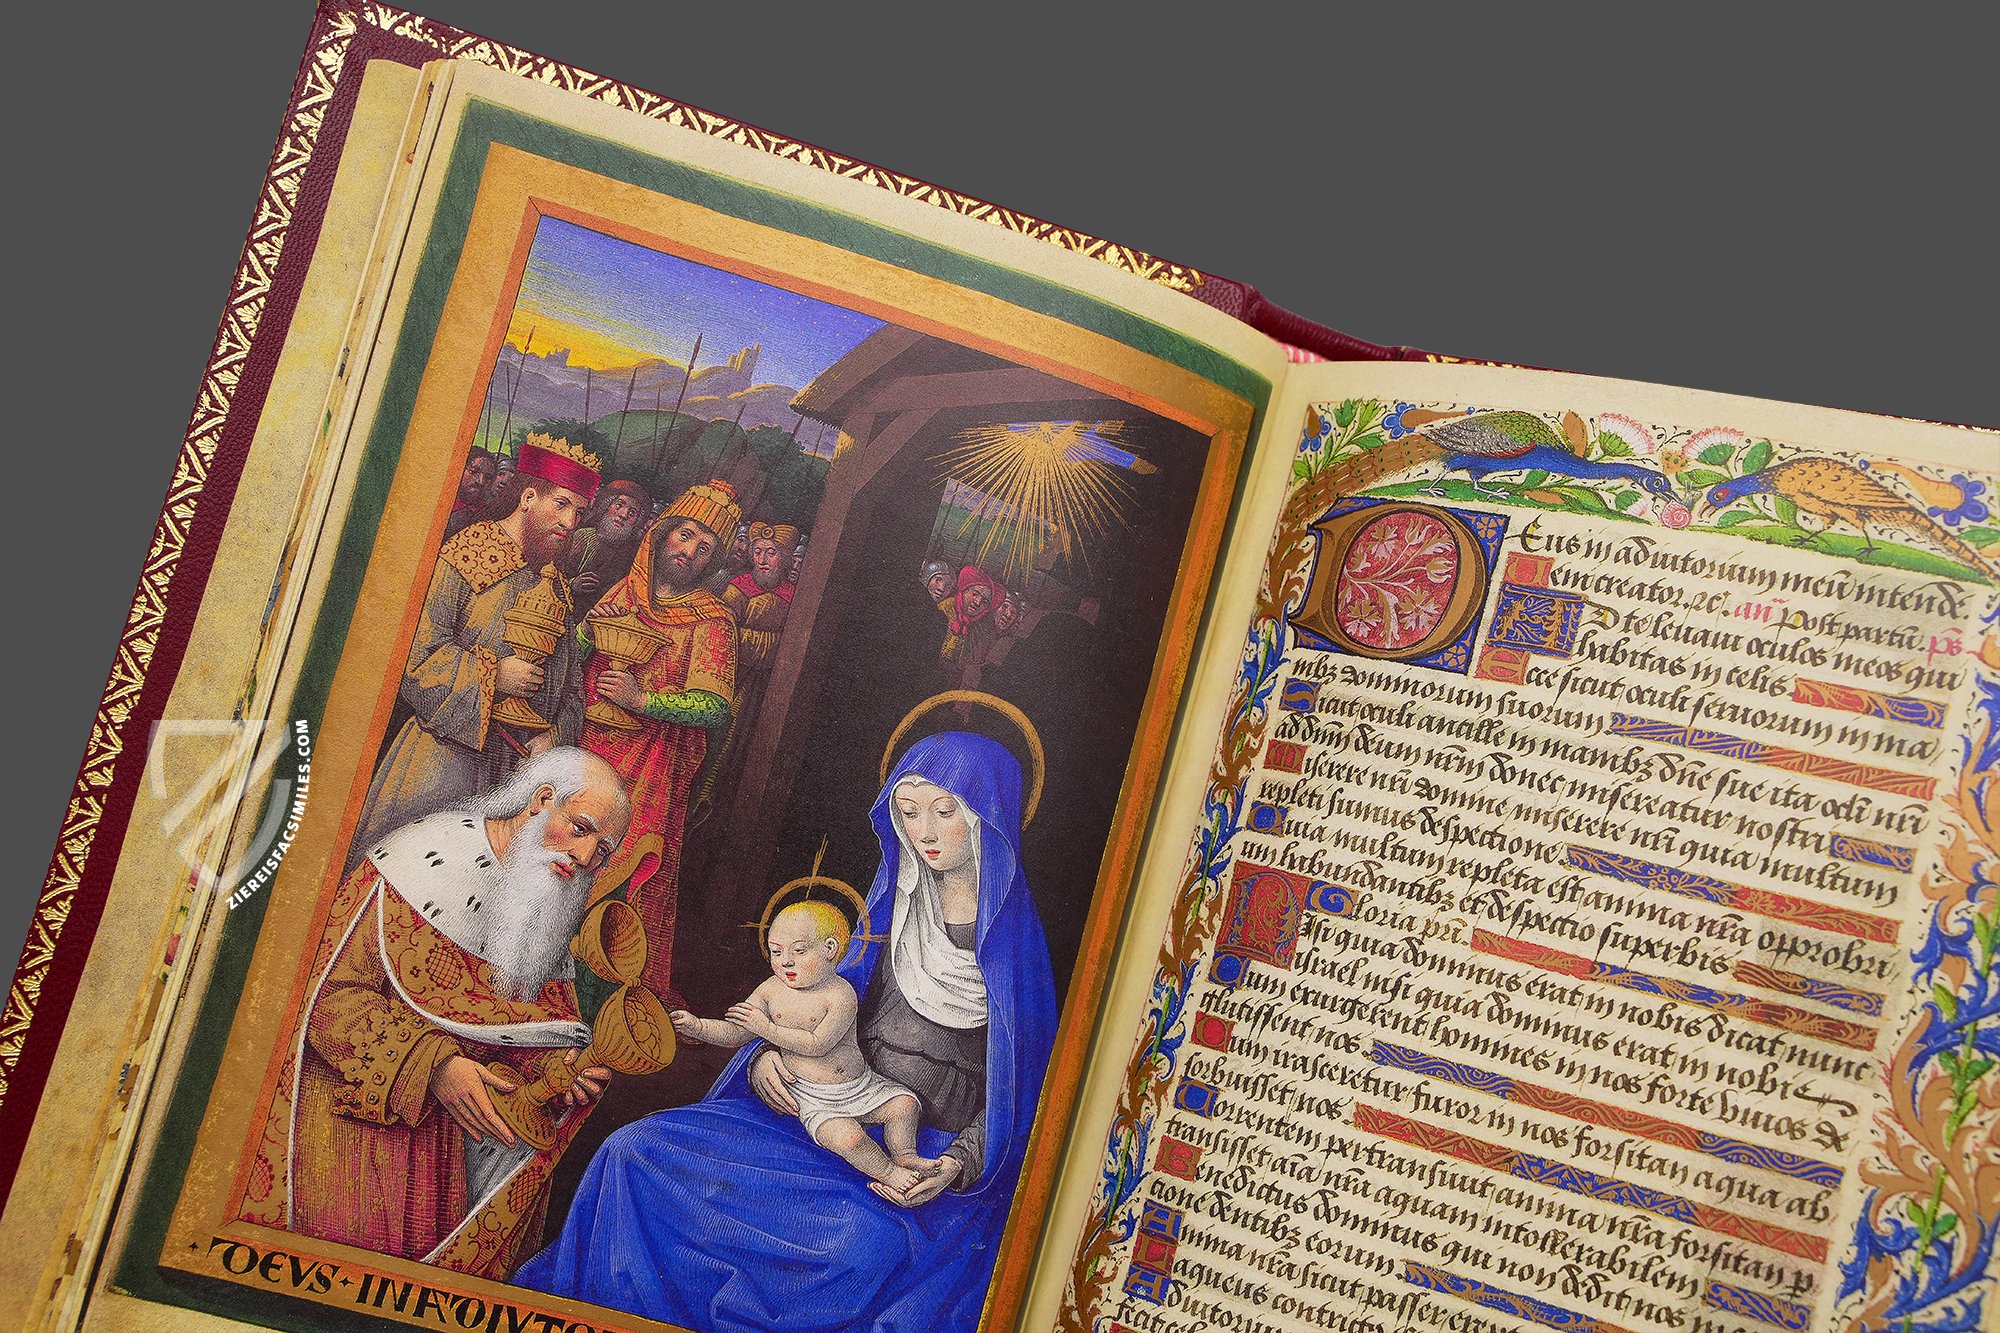 ZIEREISFACSIMILES.COM
DEVS · IN ADIVTO
Deus in adiutorium meū intende.
em creator. ꝛc. an̄ Post partū. pš
Ad te leuaui oculos meos qui
habitas in celis.
Ecce sicut oculi seruorum in ma
nibꝫ dominorum suorum.
Sicut oculi ancille in manibꝫ dn̄e sue ita oclī nr̄i
ad dnm̄ deum nr̄m donec misereatur nostri
Miserere nr̄i domine miserere nr̄i quia multum
repleti sumus despectione.
Quia multum repleta est anima nr̄a opprobri
um habundantibꝫ et despectio superbis
Gloria pr̄i.
Nisi quia dominus erat in nobis dicat nunc
israel nisi quia dominus erat in nobis
Cum exurgerent homines in nos forte viuos de
glutissent nos.
Cum irasceretur furor in nos forsitan aqua ab
sorbuisset nos.
Torrentem pertransiuit anima nr̄a forsitan p
transisset aīa nr̄a aquam intollerabilem
Benedictus dominus qui non dedit nos in
cione dentibꝫ eorum.
Anima nr̄a sicut passer ere
Laqueus contri
Adiutoriu
fecit ce